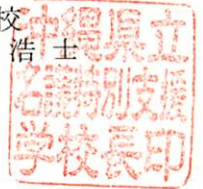 校
浩士
沖縄県立
名護特別支援
学校長印